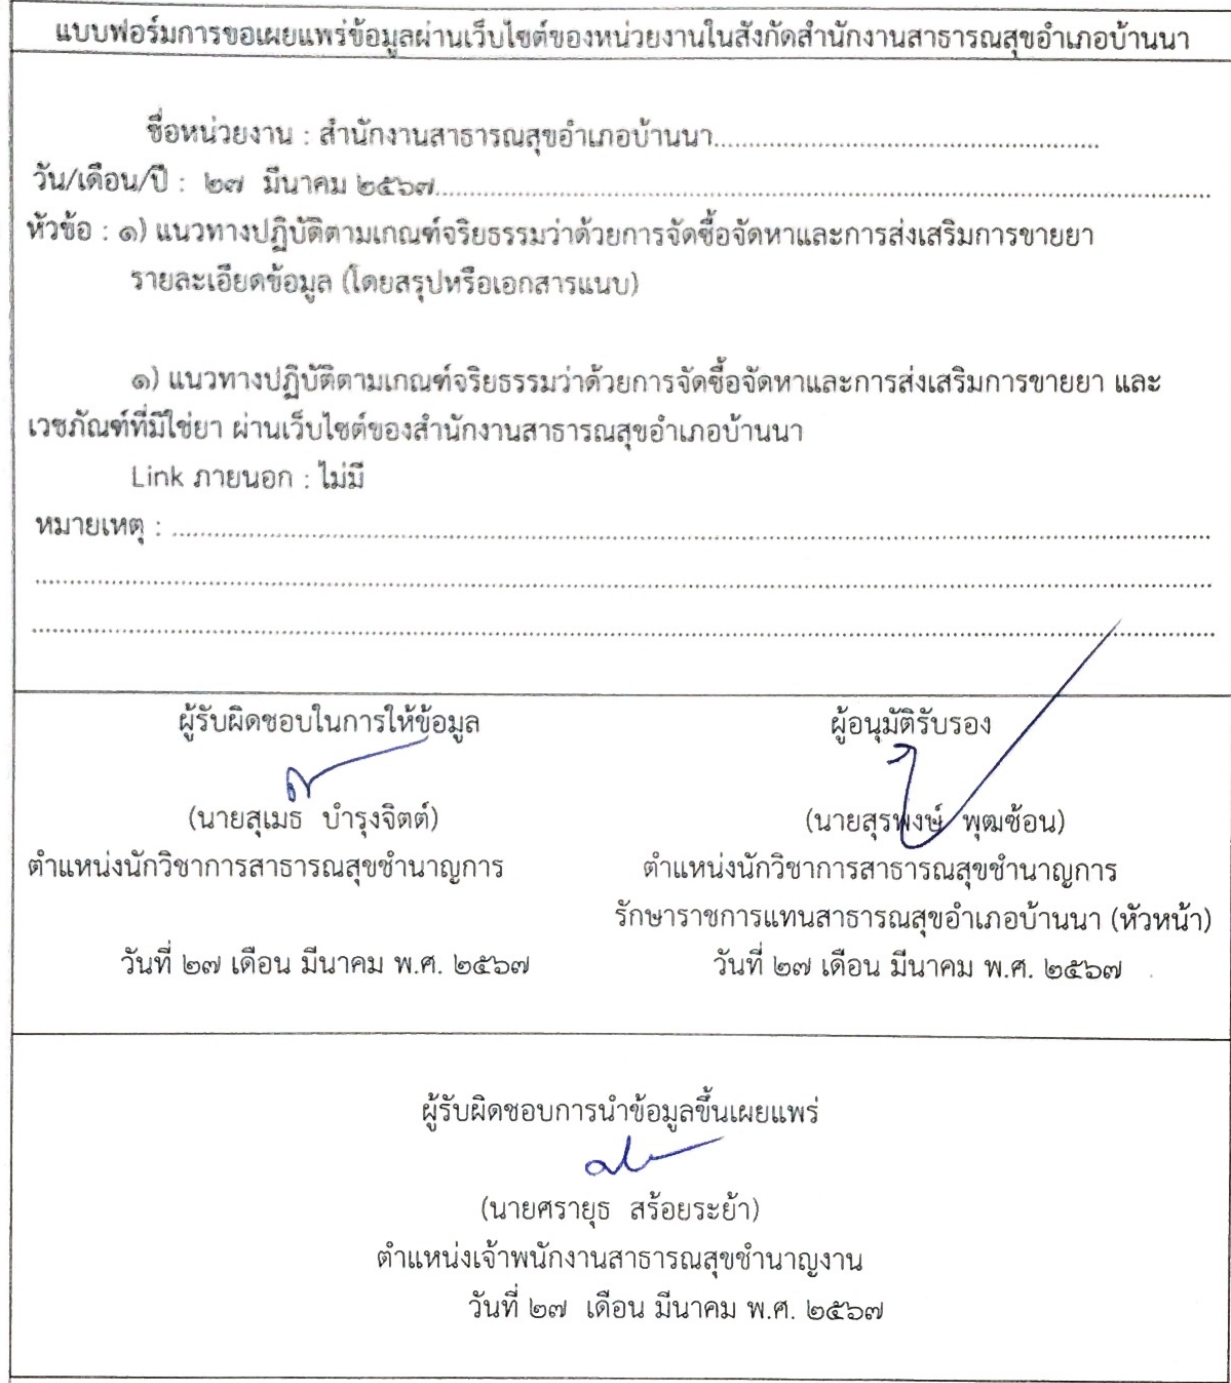 แบบฟอร์มการขอเผยแพร่ข้อมูลผ่านเว็บไซต์ของหน่วยงานในสังกัดสำนักงานสาธารณสุขอำเภอบ้านนา
ชื่อหน่วยงาน : สำนักงานสาธารณสุขอำเภอบ้านนา
วัน/เดือน/ปี : ๒๗ มีนาคม ๒๕๖๗
หัวข้อ : ๑) แนวทางปฏิบัติตามเกณฑ์จริยธรรมว่าด้วยการจัดซื้อจัดหาและการส่งเสริมการขายยา
รายละเอียดข้อมูล (โดยสรุปหรือเอกสารแนบ)
๑) แนวทางปฏิบัติตามเกณฑ์จริยธรรมว่าด้วยการจัดซื้อจัดหาและการส่งเสริมการขายยา และ
เวชภัณฑ์ที่มิใช่ยา ผ่านเว็บไซต์ของสำนักงานสาธารณสุขอำเภอบ้านนา
Link ภายนอก : ไม่มี
หมายเหตุ :
ผู้รับผิดชอบในการให้ข้อมูล
(นายสุเมธ บำรุงจิตต์)
ตำแหน่งนักวิชาการสาธารณสุขชำนาญการ
วันที่ ๒๗ เดือน มีนาคม พ.ศ. ๒๕๖๗
ผู้อนุมัติรับรอง
(นายสุรพงษ์ พุฒซ้อน)
ตำแหน่งนักวิชาการสาธารณสุขชำนาญการ
รักษาราชการแทนสาธารณสุขอำเภอบ้านนา (หัวหน้า)
วันที่ ๒๗ เดือน มีนาคม พ.ศ. ๒๕๖๗
ผู้รับผิดชอบการนำข้อมูลขึ้นเผยแพร่
(นายศรายุธ สร้อยระย้า)
ตำแหน่งเจ้าพนักงานสาธารณสุขชำนาญงาน
วันที่ ๒๗ เดือน มีนาคม พ.ศ. ๒๕๖๗